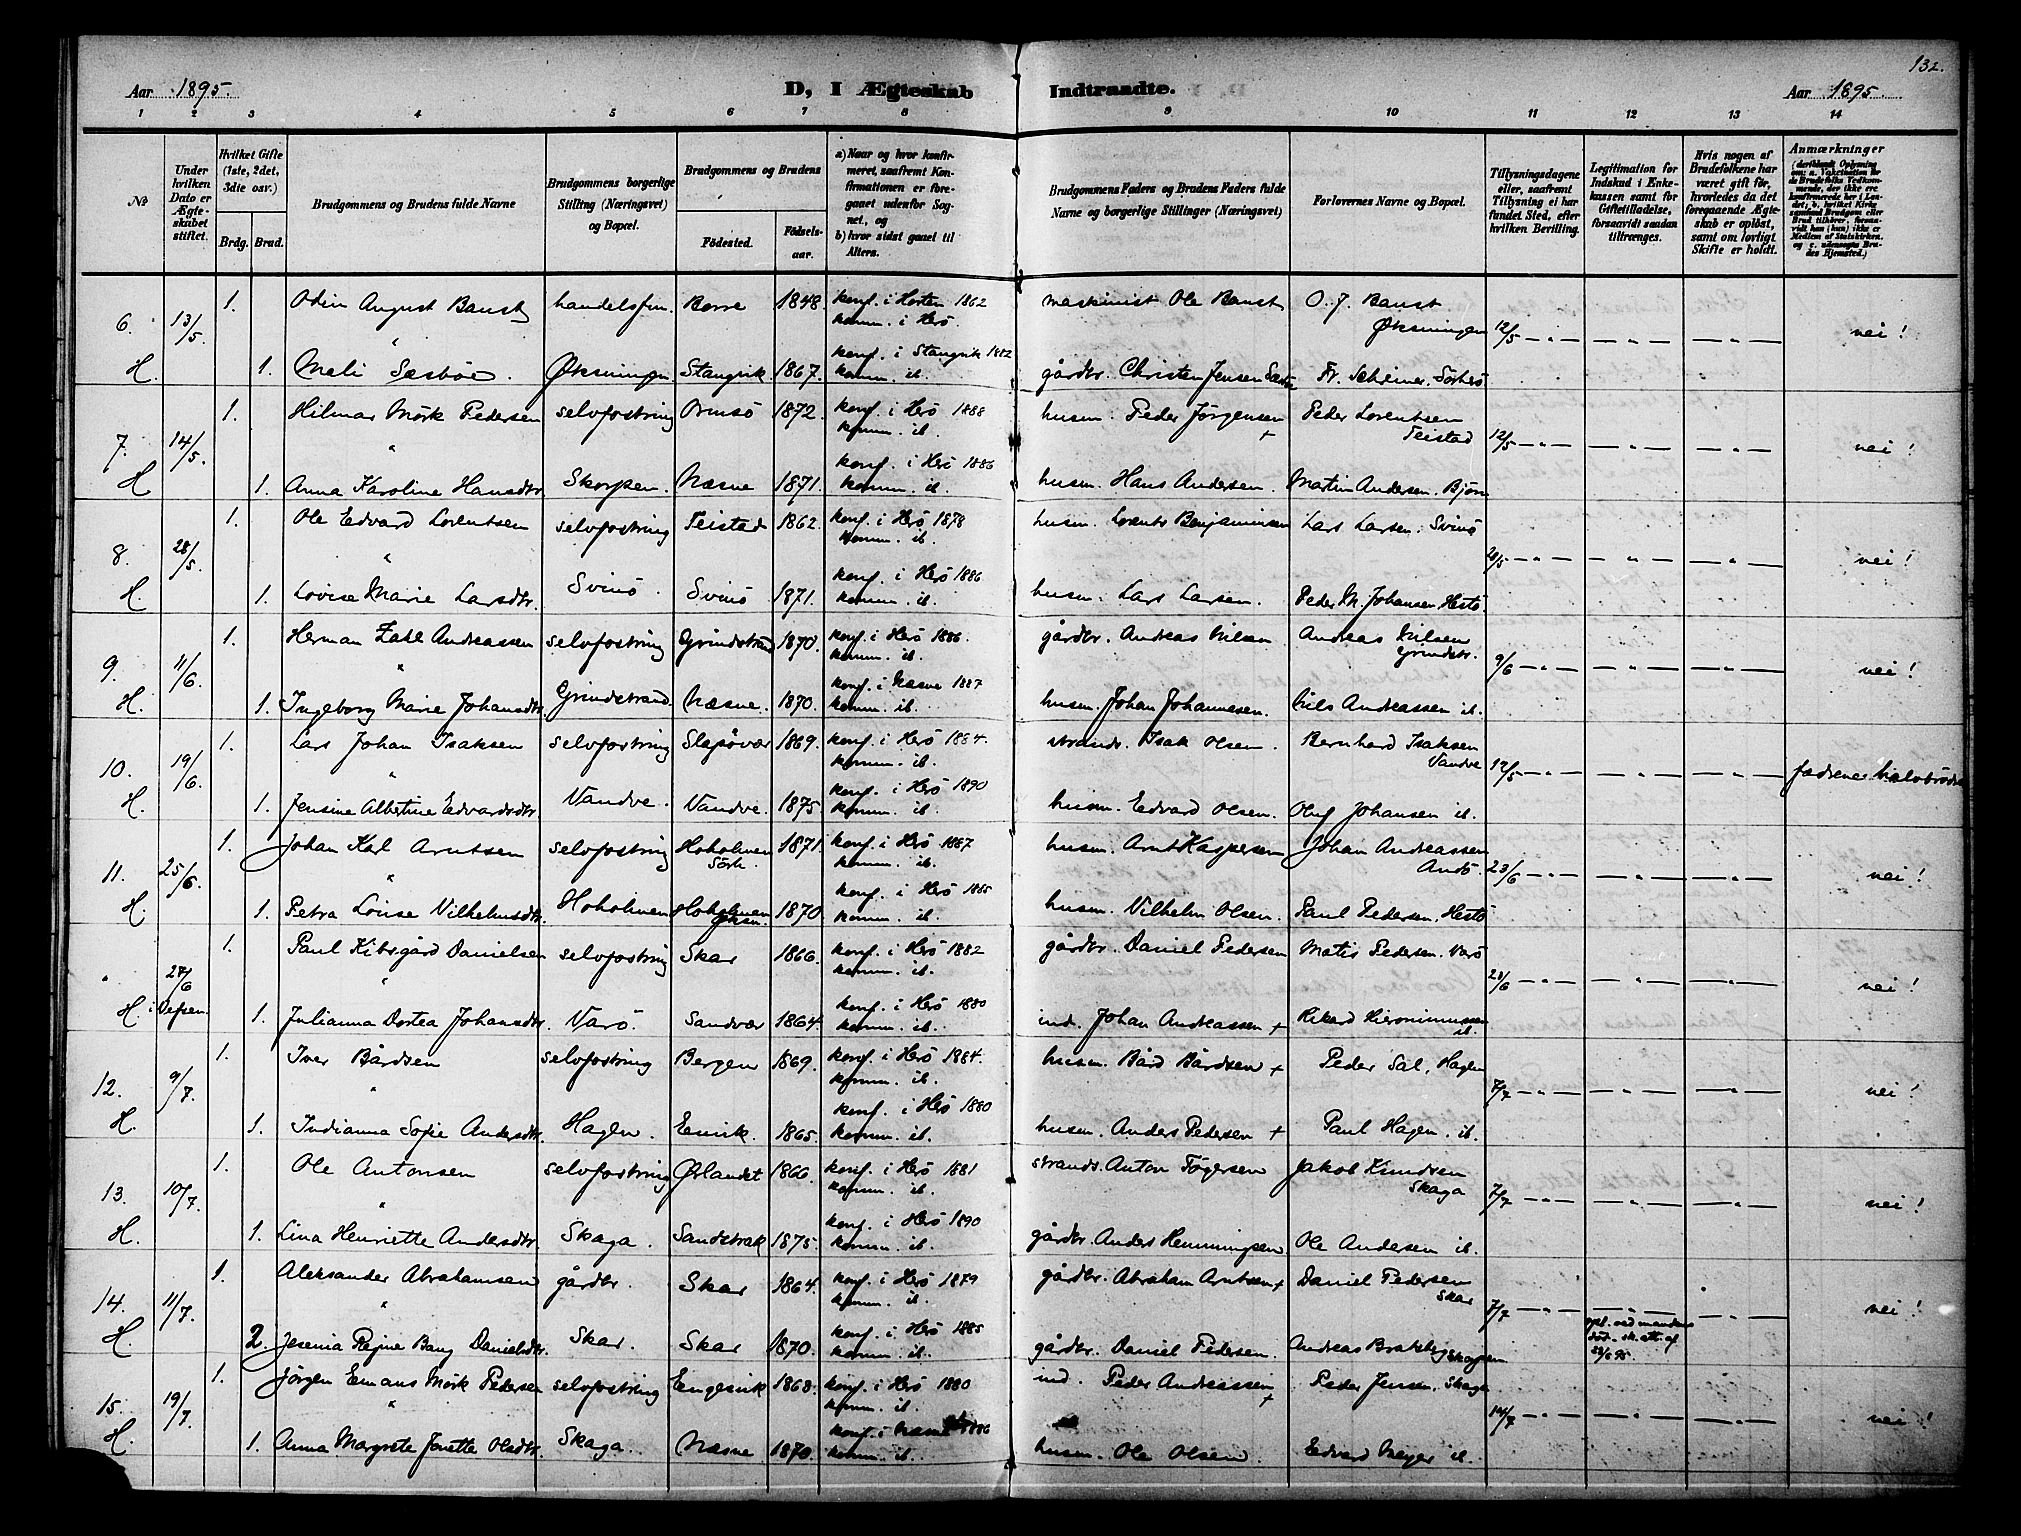 132.
Aar 1895. D, I Ægteskab Indtraadte. Aar 1895.
1 2 3 4 5 6 7 8 9 10 11 12 13 14
№
Under hvilken Dato er Ægteskabet stiftet.
Hvilket Gifte (1ste, 2det, 3die osv.)
Brdg. Brud.
Brudgommens og Brudens fulde Navne
Brudgommens borgerlige Stilling (Næringsvei) og Bopæl.
Brudgommens og Brudens
Fødested. Fødselsaar.
a) Naar og hvor konfirmeret, saafremt Konfirmationen er foregaaet udenfor Sognet, og
b) hvor sidst gaaet til Alters.
Brudgommens Faders og Brudens Faders fulde Navne og borgerlige Stillinger (Næringsvei)
Forlovernes Navne og Bopæl.
Tillysningsdagene eller, saafremt Tillysning ei har fundet Sted, efter hvilken Bevilling.
Legitimation for Indskud i Enkekassen samt for Giftetilladelse, forsaavidt saadan tiltrænges.
Hvis nogen af Brudefolkene har været gift før, hvorledes da det foregaaende Ægteskab er opløst, samt om lovligt Skifte er holdt.
Anmærkninger
6. 13/5 1. Odin August Banst handelsfm. Borre 1848. konf. i Horten 1862 komm. i Herö. maskinist Ole Banst O. J. Banst Øksningen 12/5 nei!
H. 1. Meli Sæsbøe. Øksningen Stangvik 1867. konf. i Stangvik 1882 komm. ib. gårdbr. Christen Jensen Fr. Scheiner. Sörherö
7. 14/5. 1. Hilmar Mörk Pedersen selvfostring Ormsö 1872. konf. i Herö 1888 komm. ib. husm. Peder Jørgensen + Peder Lorentsen Teistad 12/5 nei!
H 1. Anna Karoline Hansdtr. Skorpen. Næsne 1871. konf. i Herö 1886 komm. ib. husm. Hans Andersen. Martin Andersen. Bjørn
8. 28/5. 1. Ole Edvard Lorentsen selvfostring Teistad 1862. konf. i Herö 1878 komm. ib. husm. Lorents Benjaminsen Lars Larsen. Svinö nei!
H. 1. Lovise Marie Larsdtr. Svinö. Svinö 1871. konf. i Herö 1886 komm. ib. husm. Lars Larsen. Peder M. Johansen. Hestö
9. 11/6. 1. Herman Zahl Andreassen selvfostring Grindstrand 1870. konf. i Herö 1886. komm. ib. gårdbr. Andreas Nilsen Andreas Nilsen Grindstr. 9/6 nei!
H. 1. Ingeborg Marie Johansdtr. Grindstrand Næsne. 1870. konf. i Næsne 1887 komm. ib. husm. Johan Johannesen. Nils Andreassen ib.
10. 19/6. 1. Lars Johan Isaksen selvfostring Slapövær 1869. konf. i Herö 1884. komm. ib. strands. Isak Olsen. Bernhard Isaksen Vandve 12/5 fædrene halvbrødre
H. 1. Jensine Albertine Edvardsdtr. Vandve. Vandve. 1875 konf. i Herö 1890 komm. ib. husm. Edvard Olsen. Oluf Johansen ib.
11. 25/6. 1. Johan Karl Arntsen selvfostring Hoholmen Sörh. 1871. konf. i Herö 1887 komm. ib. husm. Arnt Kaspersen Johan Andreassen Andö. 23/6 nei!
H. 1. Petra Lovise Vilhelmsdtr. Hoholmen Hoholmen 1870 konf. i Herö 1885 komm. ib. husm. Vilhelm Olsen. Paul Pedersen. Hestö
" 27/6 1. Paul Kibsgård Danielsen selvfostring Skar 1866. konf. i Herö 1882 komm. ib. gårdbr. Daniel Pedersen Matis Pedersen. Varö 23/6 nei!
H. i Vefsen. 1. Julianna Dortea Johansdtr. Varö. Sandvær 1864. konf. i Herö 1880 komm. ib. ind. Johan Andreassen + Rikard Hieronimussen ib.
12. 9/7. 1. Iver Bårdsen selvfostring Bergen 1869. konf. i Herö 1884. komm. ib. husm. Bård Bårdsen + Peder Sal, Hagen 7/7 nei!
H. 1. Indianna Sofie Andersdtr. Hagen. 1865. konf. i Herö 1880 komm. ib. husm. Anders Pedersen + Paul Hagen. ib.
13. 10/7. 1. Ole Antonsen selvfostring Ørlandet 1866. konf. i Herö 1881 komm. ib. strands. Anton Tøgersen Jakob Knudsen Skaga 7/7 nei!
H. 1. Lina Henriette Andersdtr. Skaga. Sandstrak 1875. konf. i Herö 1890 komm. ib. gårdbr. Anders Hemmingsen Ole Andersen ib.
14. 11/7. 1. Aleksander Abrahamsen gårdbr. Skar 1864. konf. i Herö 1879 komm. ib. gårdbr. Abraham Arntsen + Daniel Pedersen Skar 7/7 nei!
H. 2. Jesenia Regine Bang Danielsdtr. Skar. Skar 1870. konf. i Herö 1885 komm. ib. gårdbr. Daniel Pedersen. Andreas Skorpen opl. ved mandens död. sk. att. af
15. 19/7. 1. Jörgen Emans Mörk Pedersen selvfostring Engesvik 1868. konf. i Herö 1880 komm. ib. ind. Peder Andreassen + Peder Jensen. Skaga 14/7 nei!
H. 1. Anna Margrete Jonette Olsdtr. Skaga. Næsne 1870. konf. i Næsne 1886 komm. ib. husm. Ole Olsen. Edvard Meyer ib.